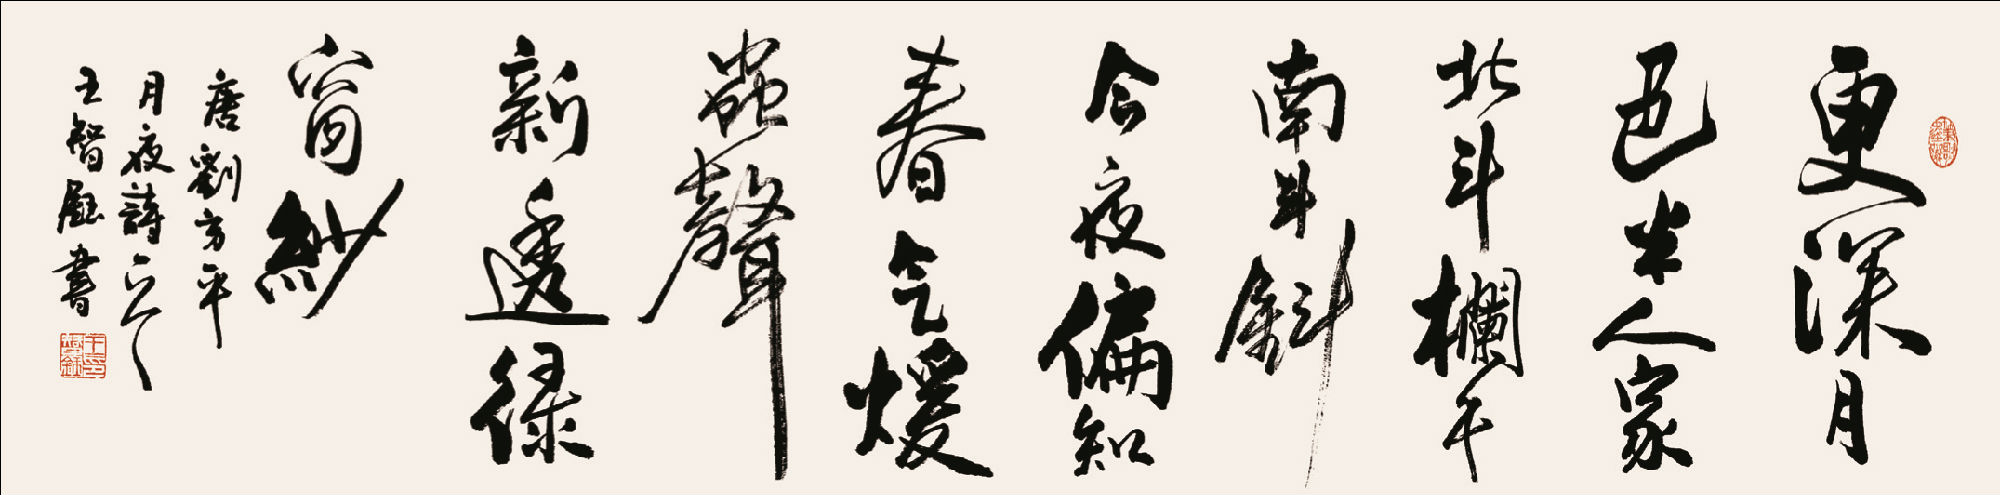 更深月
色半人家
北斗欄干
南斗斜
今夜偏知
春气煖
蟲聲
新透綠
窗紗
唐劉方平
月夜詩一首
王智鈺書